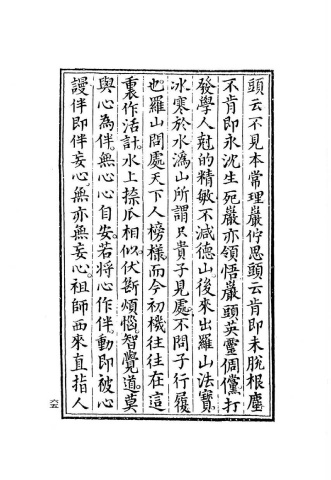 頭云不見本常理巖佇思頭云肯即未脫根塵
不肯即永沈生死巖亦領悟巖頭英靈倜儻打
發學人尅的精敏不減德山後來出羅山法寶
冰寒於水溈山所謂只貴子見處不問子行履
也羅山問處天下人榜樣而今初機往往在這
裏作活計水上捺瓜相似伏斷煩惱智覺道莫
與心為伴無心心自安若將心作伴動即被心
謾伴即伴妄心無亦無妄心祖師西來直指人
六五